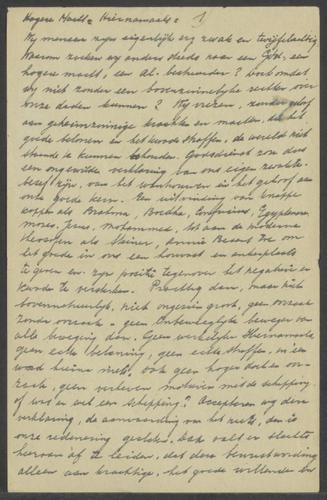 Hogere Macht = Hiernamaals = 1
Wij menschen zijn eigenlijk erg zwak en twijfelachtig
Waarom zoeken wij anders steeds naar een God, een
hogere macht, een al-bestuurder? Toch omdat
wij niet zonder een bovenzinnelijke rechter over
onze daden kunnen? Wij vrezen, zonder geloof
aan geheimzinnige krachten en machten, die het
goede belonen en het kwade straffen, de wereld niet
staande te kunnen houden. Godsdienst zou dus
een ongewilde verklaring van ons eigen zwakte-
besef zijn, van het wanhouwen en het geloof aan
ons goede kern. Een uitvinding van knappe
koppen als Brahma, Boedha, Confucius, Egyptenaren
Moses, Jesus, Mohammed, tot aan de moderne
als Steiner, Annie Besant toe om
het goede in ons een houvast en ankerplaats
te geven en zijn positie tegenover het negatieve en
kwade te versterken. dan, maar niet
bovennatuurlijk, niet ongezien groot, geen oorzaak
zonder oorzaak. Geen Onbewegelijke beweger van
alle beweging dan. Geen werkelijke Hiernamaals
geen echte beloning, geen echte straffen, in één
woord hierna niets, ook geen hoger doel en oor-
zaak, geen verheven motieven met de schepping
of was er wel een schepping? Accepteren wij deze
verklaring, de aanvaarding van het niets, dan is
onze redenering gesloten. Dan valt er slechts
hiervan af te leiden, dat deze bewustwording
alleen aan krachtige, het goede willenden